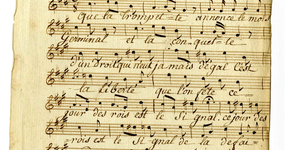 que la trompet=te annonce le mois
Germinal et la con=quet=te
d'un Droit qui n'eut ja mais d'égal c'est
la liberté que l'on fête ce
jour des rois est le si gnal. ce jour des
rois est le si gnal de la dégai=